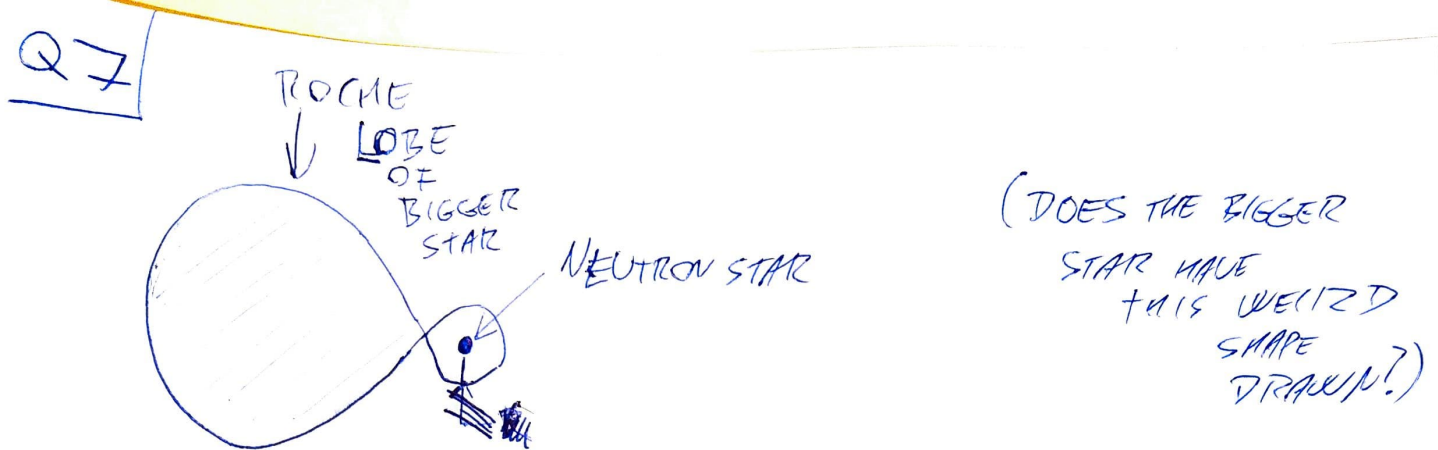 Q7
ROCHE
LOBE
OF
BIGGER
STAR
NEUTRON STAR
(DOES THE BIGGER
STAR HAVE
THIS WEIRD
SHAPE
DRAWN?)